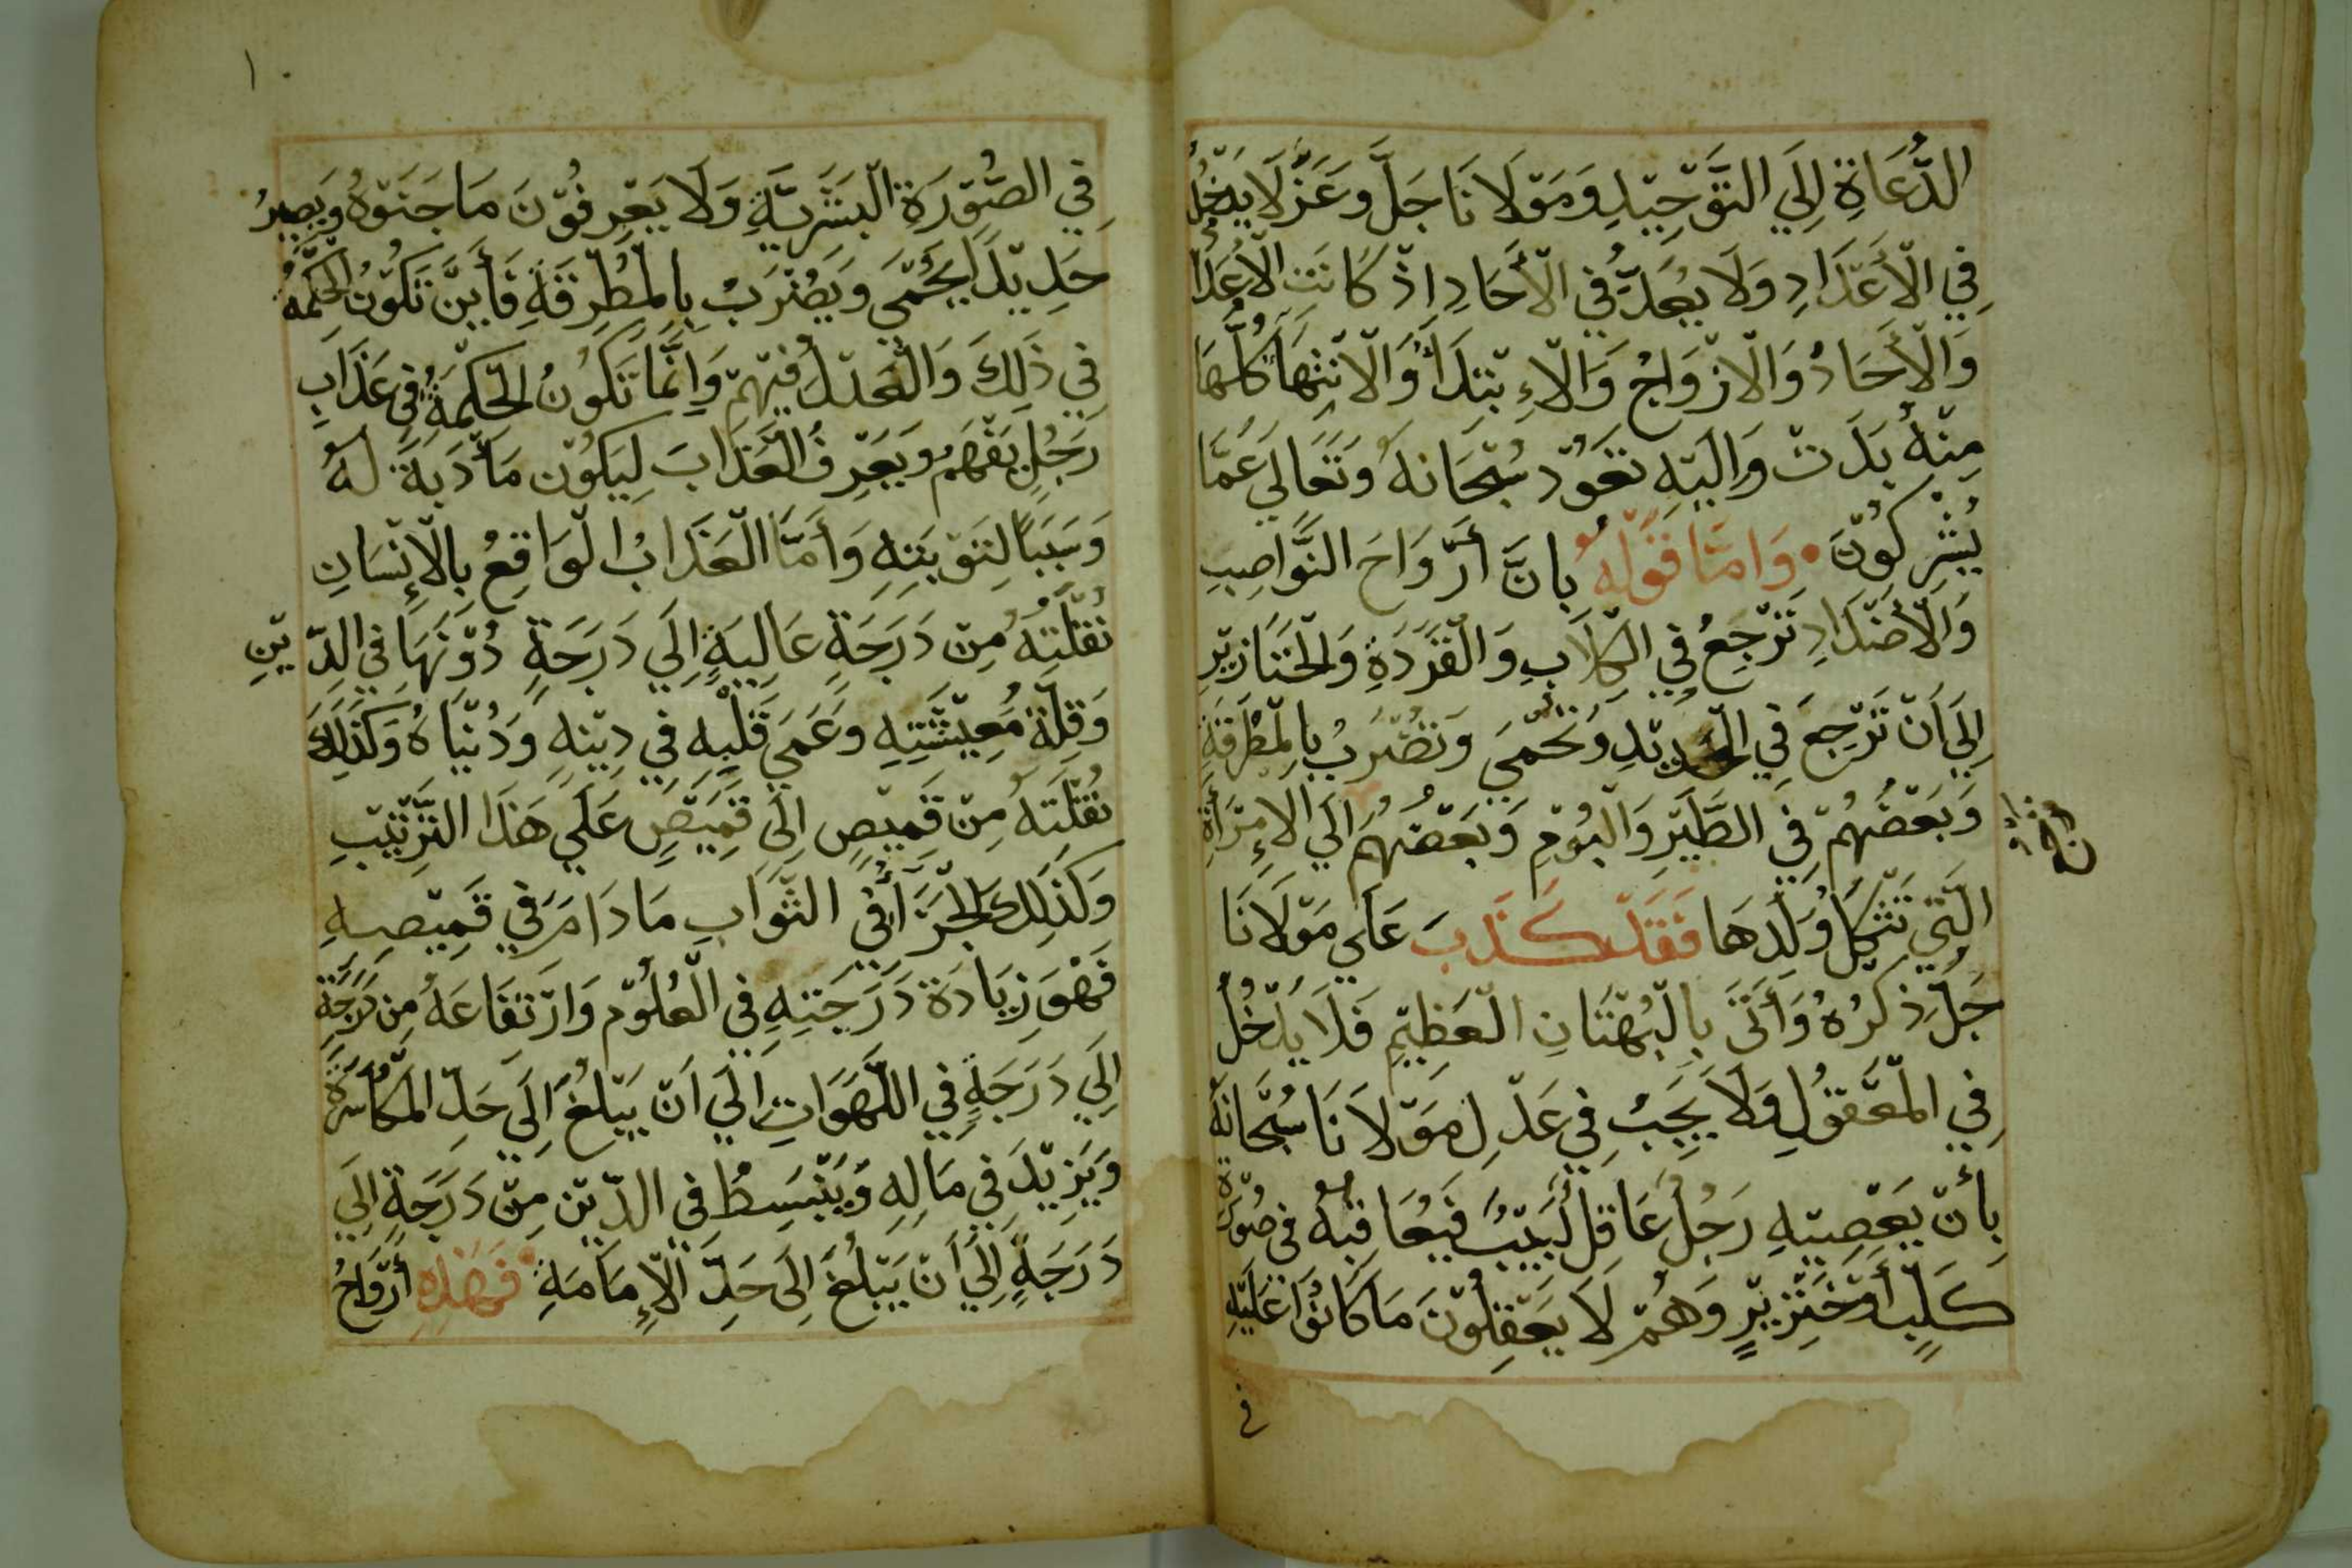 الدُّعَاةِ إِلَي التَّوْحِيْدِ وَمَوْلَانَا جَلَّ وعَزَّ لَا يَدْخُلُ
فِي الْأَعْدَادِ وَلَا يُعَدُّ في الْأَحَادِ اِذْ كَانَتِ الْأَعْدَا
وَالْأَحَادُ وَالْازْوَاجُ وَالْاِبْتِدَأُ وَالْانْتِهَا كُلُّهَا
مِنْهُ بَدَتْ وَإِلَيْهِ تَعُوْد سُبْحَانهُ وَتَعَالَي عَمَّا
يُشْرِكُوْنَ • وَامَّا قَوْلهُ بانَّ أَرْوَاحَ النَّوَاصِبِ
وَالْأَضْدَادِ تَرْجِعُ فِي الْكِلَابِ وَالْقَرَدَةِ وَالْخَنَازِيْرِ
اِلَي اَنْ تَرْجِعَ فِي الْحَدِيْدِ وَتُحْمَي وَتُضْرَبُ بِالْمِطْرَقَةِ
وَبَعْضُهُمْ فِي الطَّيْرِ وَالْبُوْمِ وَبَعْضُهُمْ اِلَي الْإِمْرَأَةِ
الَّتِي تَثْكِلُ وَلَدهَا فَقَدْ كَذَبَ عَلَي مَوْلَانَا
جَلَّ ذِكْرُهُ وَأَتَى بِالْبُهْتَانِ الْعَظِيْمِ فَلَا يَدْخُلُ
فِي الْمَعْقُوْلِ وَلَا يَجِبُ فِي عَدْلِ مَوْلَانَا سُبْحَانَهُ
بِأَنْ يَعْصِيْهِ رَجُلٌ عَاقلٌ لَبِيْبٌ فَيُعَاقِبهُ فى صُوْرَة
كَلْبٍ أَوْ خِنْزِيْرٍ وَهُمْ لَا يَعْقِلُوْنَ مَا كَانُوْا عَلَيْهِ
في
١٠
فِي الصُّوْرَةِ الْبَشَرِيَّةِ وَلَا يَعْرِفُوْنَ مَا جَنَوْهُ وَيَصِيْرُ
حَدِيْدًا يُحْمَي وَيُضْرَبُ بِالْمِطْرِقَةِ فَأَيْنَ تَكُوْنُ الْحِكْمَةُ
فِي ذَلِكَ وَالْعَدْلُ فِيْهِمْ وَاِنَّمَا تَكُوْنُ الْحِكْمَةُ فِي عَذَابِ
رَجُلٍ يَفْهَمُ وَيَعْرِفُ الْعَذَابَ لِيَكُوْن مَأْدَبَةً لَهُ
وَسَبَبًا لِتَوْبَتِهِ وَأَمَّا الْعَذَابُ الْوَاقِعُ بِالْإِنْسَانِ
نُقْلَتِهُ مِنْ دَرَجَةٍ عَالِيَةٍ اِلَي دَرَجَةٍ دُوْنَهَا في الدِّيْنِ
وَقِلَّة مُعِيْشَتِهِ وَعَمَي قَلْبِهِ فِي دِيْنِهِ وَدُنْيَاهُ وَكَذَلِكَ
نُقْلَتهُ مِنْ قَمِيْصٍ اِلَي قَمِيْصٍ عَلَي هَذَا التَّرْتِيْبِ
وَكَذَلِكَ الْجَزَاءُ فِي الثَّوَابِ مَا دَامَ في قَمِيْصِهِ
فَهْوَ زِيَادَة دَرَجَتِهِ فِي الْعُلُوْم وَارْتِفَاعهُ مِن دَرَجَةٍ
اِلَي دَرَجَةٍ فِي اللَّهَوَاتِ اِلَي اَنْ يَبْلُغَ اِلَى حَدِّ الْمُكَاسَرَةِ
وَيَزِيْدَ فِي مَالِهِ وَيَنْبَسِطُ فِي الدِّيْن مِنْ دَرَجَةٍ اِلَي
دَرَجَةٍ اِلَي أَنْ يَبْلُغَ اِلَى حَدِّ الْإِمَامَةِ • فَهَذِهِ أَرْوَاحُ